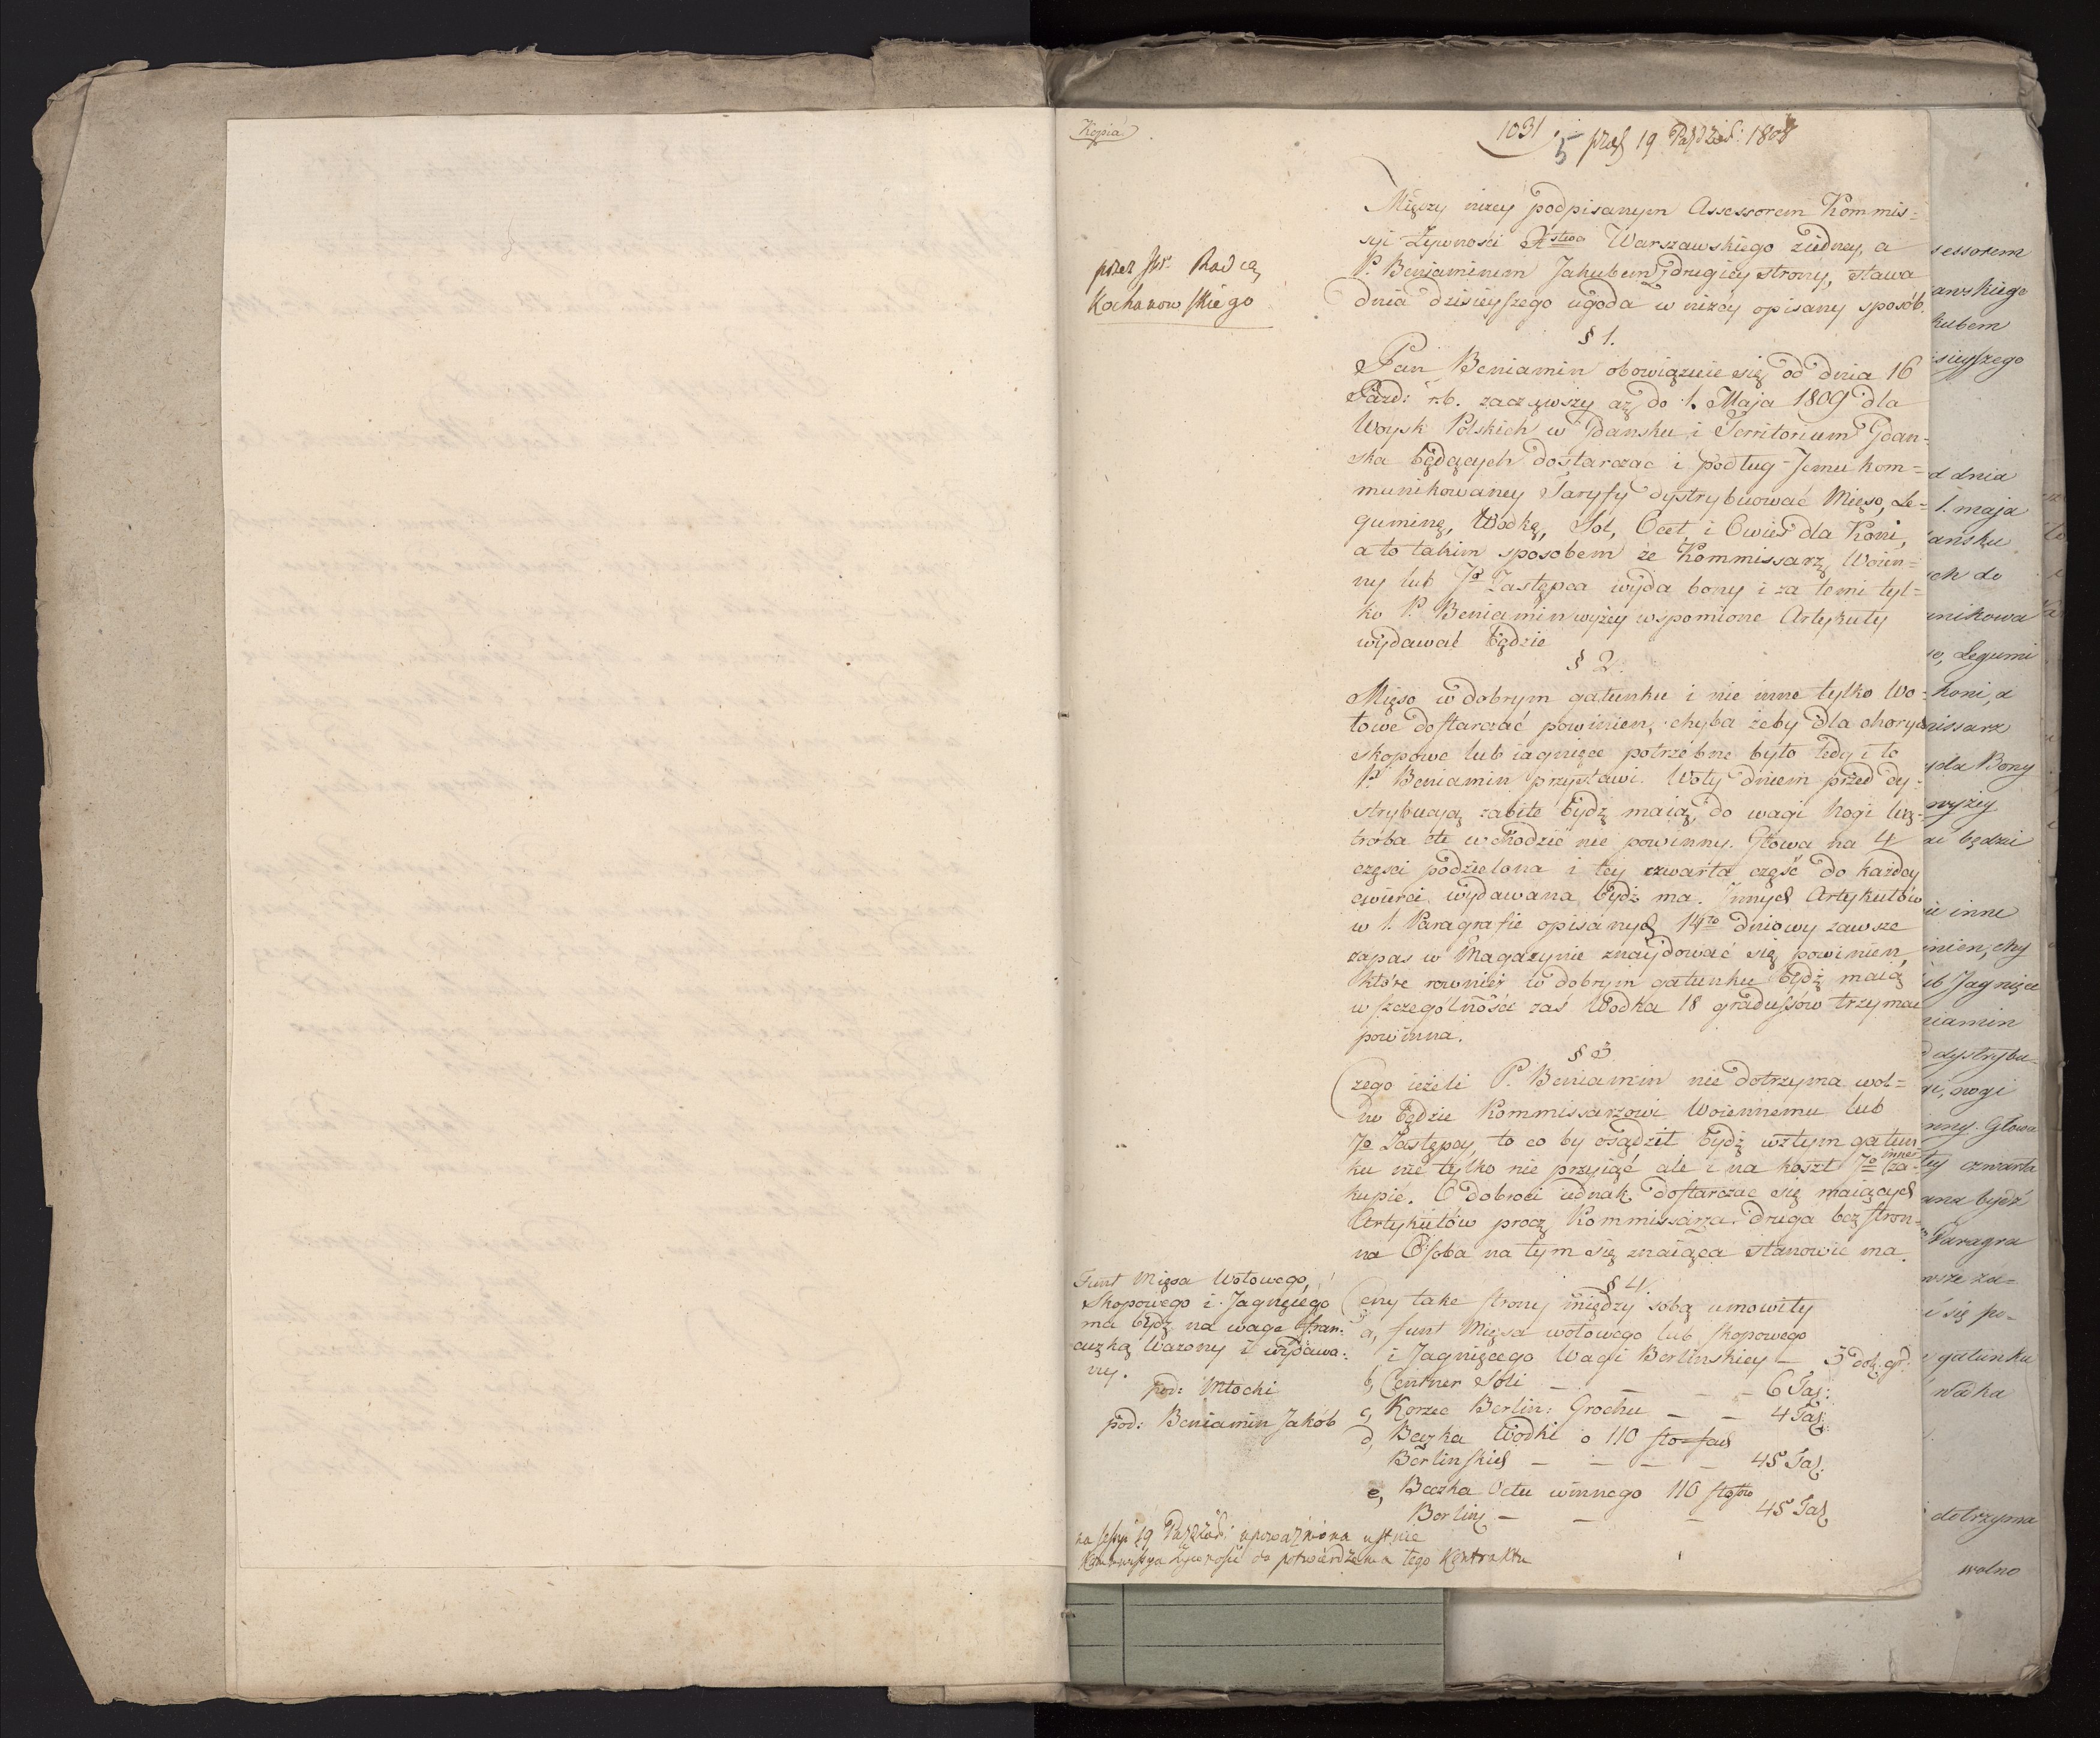 Kopia
1031. 5 præs 19 Paździer: 1808
przez JW. Radcę
Kochanowskiego
Między niżey podpisanym Assessorem Kommis=
syi Żywności Xstwa Warszawskiego ziedney, a
P. Beniaminem Jakubem z drugiey strony, stawa
dnia dzisieyszego ugoda w niżey opisany sposób.
§ 1.
Pan Beniamin obowiązuie się od dnia 16
Pazd: r.b. zacząwszy aż do 1. Maja 1809 dla
Woysk Polskich w Gdansku i Territorium Gdan=
ska będących dostarczac i podług Jemu kom=
munikowaney Taryfy dystrybuować Mięso, Le=
guminę, Wodkę, Sol, Ocet, i Owies dla Koni,
a to takim sposobem że Kommissarz Woien=
ny lub Jo Zastępca wyda bony i za temi tyl=
ko P. Beniamin wyżey wspomione Artykuły
wydawał będzie
§ 2.
Mięso w dobrym gatunku i nie inne tylko Wo=
łowe dostarczać powinien, chyba żeby dla chorych
skopowe lub iagnięce potrzebne było tedy i to
P. Beniamin przystawi. Woły dniem przed dy=
strybucyą zabite bydź maią, do wagi Nogi
troba etc wchodzić nie powinny. Głowa na 4
częsci podzielona i tey czwarta część do każdey
cwierci wydawana bydź ma. Innych Artykułów
w 1. Paragrafie opisanych 14to dniowy zawsze
zapas w Magazynie znaydować się powinien,
które rownież w dobrym gatunku bydź maią
w szczególności zaś Wodka 18 gradussów trzymac
powinna.
§ 3
Czego ieżeli P. Beniamin nie dotrzyma wol=
no będzie Kommissarzowi Woiennemu lub
Jo Zastępcy, to co by osądził bydź w złym gatun
ku nie tylko nie przyiąć ale i na koszt Jo inne za=
kupić. O dobroci iednak dostarczac się maiących
Artykułów procz Kommissarza druga bez stron=
na Osoba na tym się znaiąca stanowić ma.
§ 4
Ceny take strony między sobą umowiły
a, funt Mięsa wołowego lub skopowego
i Jagnięcego Wagi Berlinskiey — 3 dob. gr:
b, Centner Soli — — — 6 Tal:
c, Korzec Berlin: Grochu — — 4 Tal:
d, Beczka Wodki o 110 stofach
Berlinskich — — — — 45 Tal:
e, Beczka Octu winnego 110 stofow
Berlins — — — 45 Tal
Funt Mięsa Wołowego,
Skopowego i Jagnięcego
ma bydź na wagę fran=
cuzką ważony i wydawa=
ny.
pod: Młocki
pod: Beniamin Jakób
na sessyi 19 Paździer: upoważniona ustnie
Kommissya Żywności do potwierdzenia tego Kontraktu
sessorem
awskiego
kubem
sieyszego
d dnia
1. maja
ańsku
ych do
unikowa
o, Legumi
koni, a
missarz
yda Bony
wyżey
ał będzie
ie inne
inien, chy
ub Jagnięce
niamin
dystrybu
i, nogi
inny. Głowa
tey czwarta
ana bydź
Paragra
wsze za=
ć się po=
gatunku
wodka
dotrzyma
wolno